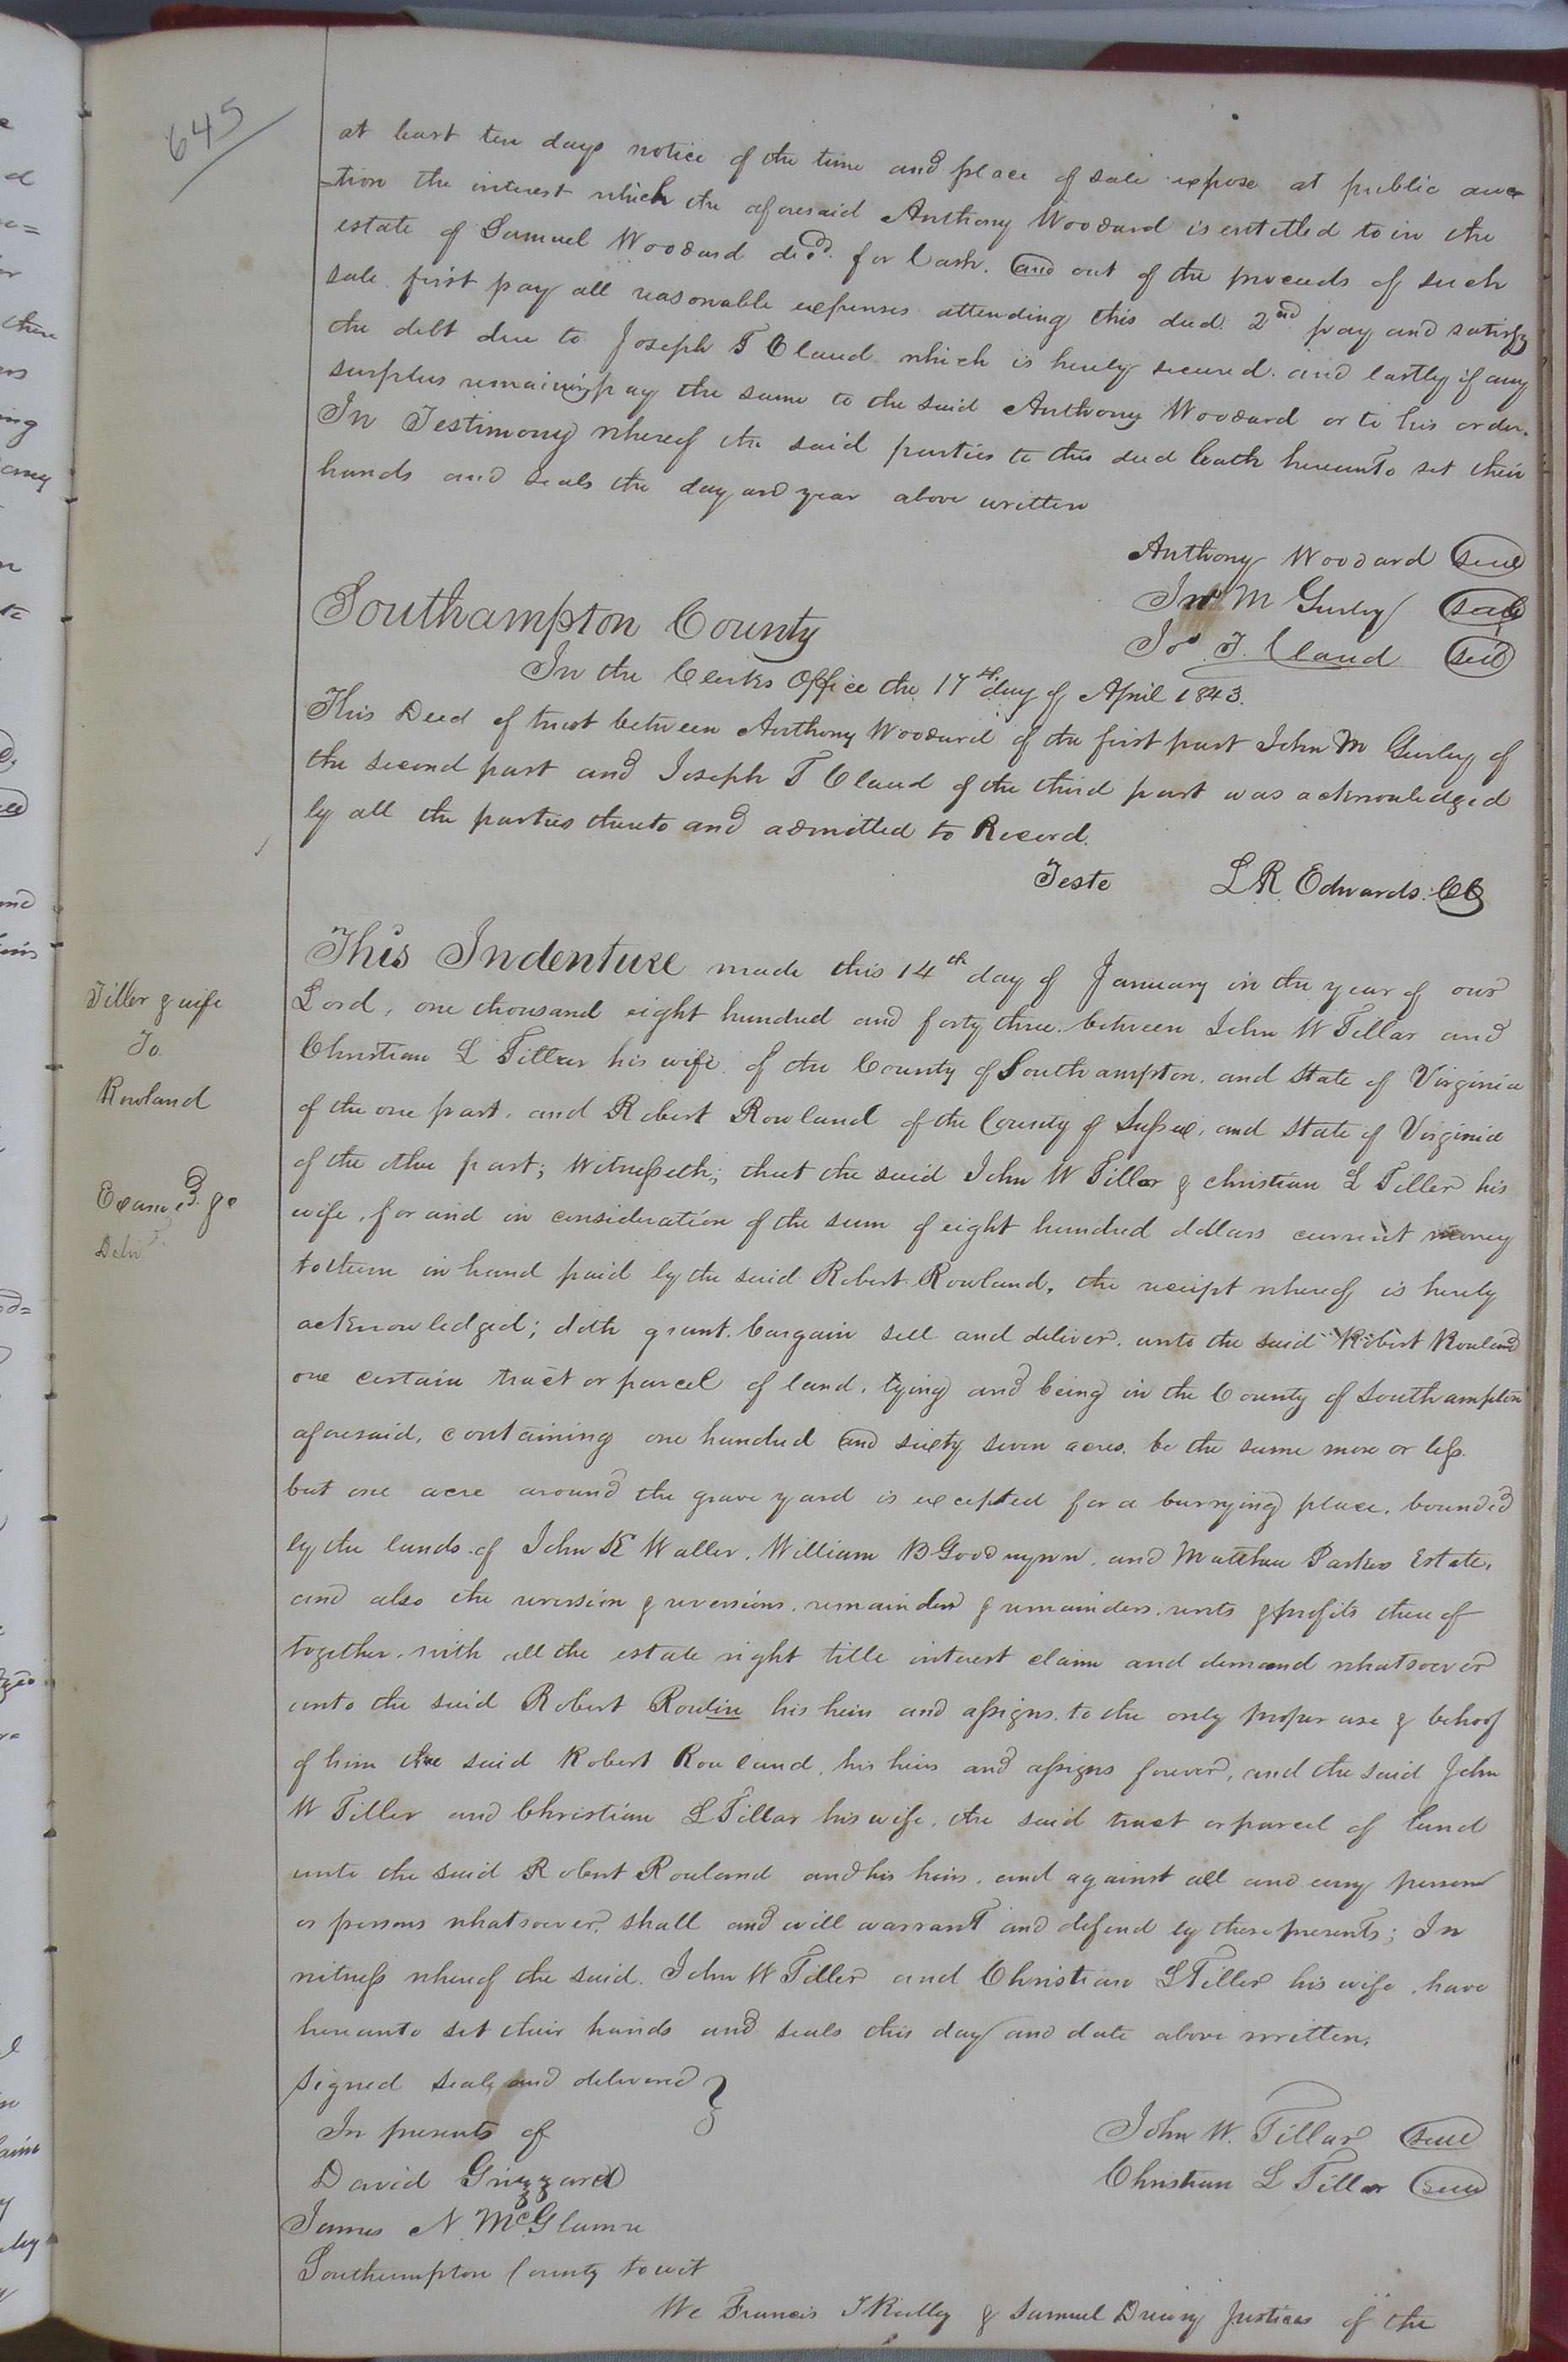 645
at least ten days notice of the time and place of sale expose at public auc-
=tion the interest which the aforesaid Anthony Woodard is entitled to in the
estate of Samuel Woodard decd. for Cash. and out of the proceeds of such
sale first pay all reasonable expenses attending this deed. 2nd pay and satisfy
the debt due to Joseph T Claud which is hereby secured. and lastly if any
surplus remaining pay the same to the said Anthony Woodard or to his order.
In Testimony whereof the said parties to this deed hath hereunto set their
hands and seals the day and year above written
Anthony Woodard seal
Jno M Gurley seal
Jos. T. Claud seal
Southampton County
In the Clerks Office the 17th day of April 1843.
This Deed of trust between Anthony Woodard of the first part John M Gurley of
the second part and Joseph T Claud of the third part was acknowledged
by all the parties thereto and admitted to Record.
Teste L R. Edwards. CC
Tiller & wife
To.
Rowland
Examed. &
Deld
This Indenture made this 14th day of January in the year of our
Lord, one thousand eight hundred and forty three. between John W Tillar and
Christian L Tillar his wife. of the County of Southampton. and State of Virginia
of the one part. and Robert Rowland of the County of Sussex, and State of Virginia
of the other part; Witnesseth; that the said John W Tillar & christian L Tiller his
wife, for and in consideration of the sum of eight hundred dollars current money
to them in hand paid by the said Robert Rowland, the receipt whereof is hereby
acknowledged; doth grant. bargain sell and deliver. unto the said Robert Rowland
one certain tract or parcel of land, lying and being in the County of Southampton
aforesaid, containing one hundred and sixty seven acres. be the same more or less.
but one acre around the grave yard is excepted for a burrying place. bounded
by the lands of John K Waller, William B Goodwynn, and Matthew Parkers Estate,
and also the reversion & reversions, remainder & remainders, rents & profits thereof
together. with all the estate right title interest claim and demand whatsoever
unto the said Robert Rowlin his heirs and assigns. to the only proper use & behoof
of him the said Robert Rowland, his heirs and assigns forever, and the said John
W Tiller and Christian L Tillar his wife. the said tract or parcel of land
unto the said Robert Rowland and his heirs. and against all and every person
or persons whatsoever, shall and will warrant and defend by these presents; In
witness whereof the said. John W Tiller and Christian L Tiller his wife, have
hereunto set their hands and seals this day and date above written.
signed seald and delivered }
In presents of
John W. Tillar seal
David Grizzard
Christian L Tillar seal
James N. McGlamre
Southampton County towit
We Francis T Ridley & Samuel Drewry Justices of the